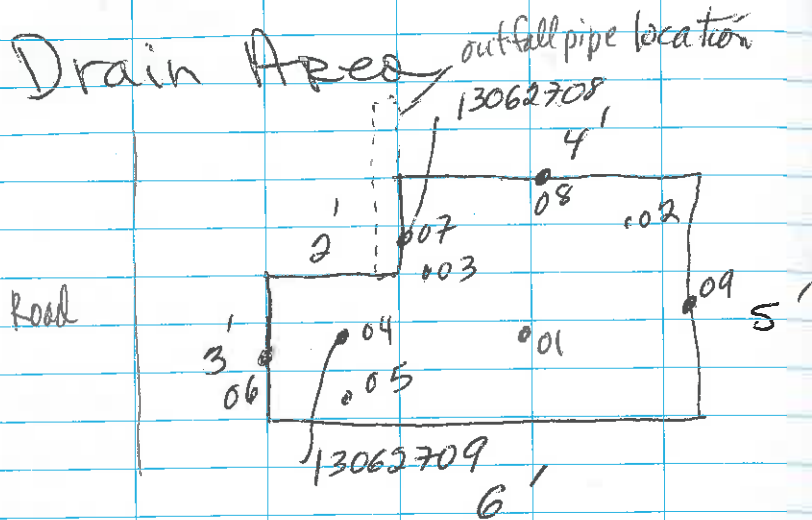 Drain Area
outfall pipe location
13062708
4'
08
02
2'
07
03
09
5'
Road
3'
04
01
06
05
13062709
6'